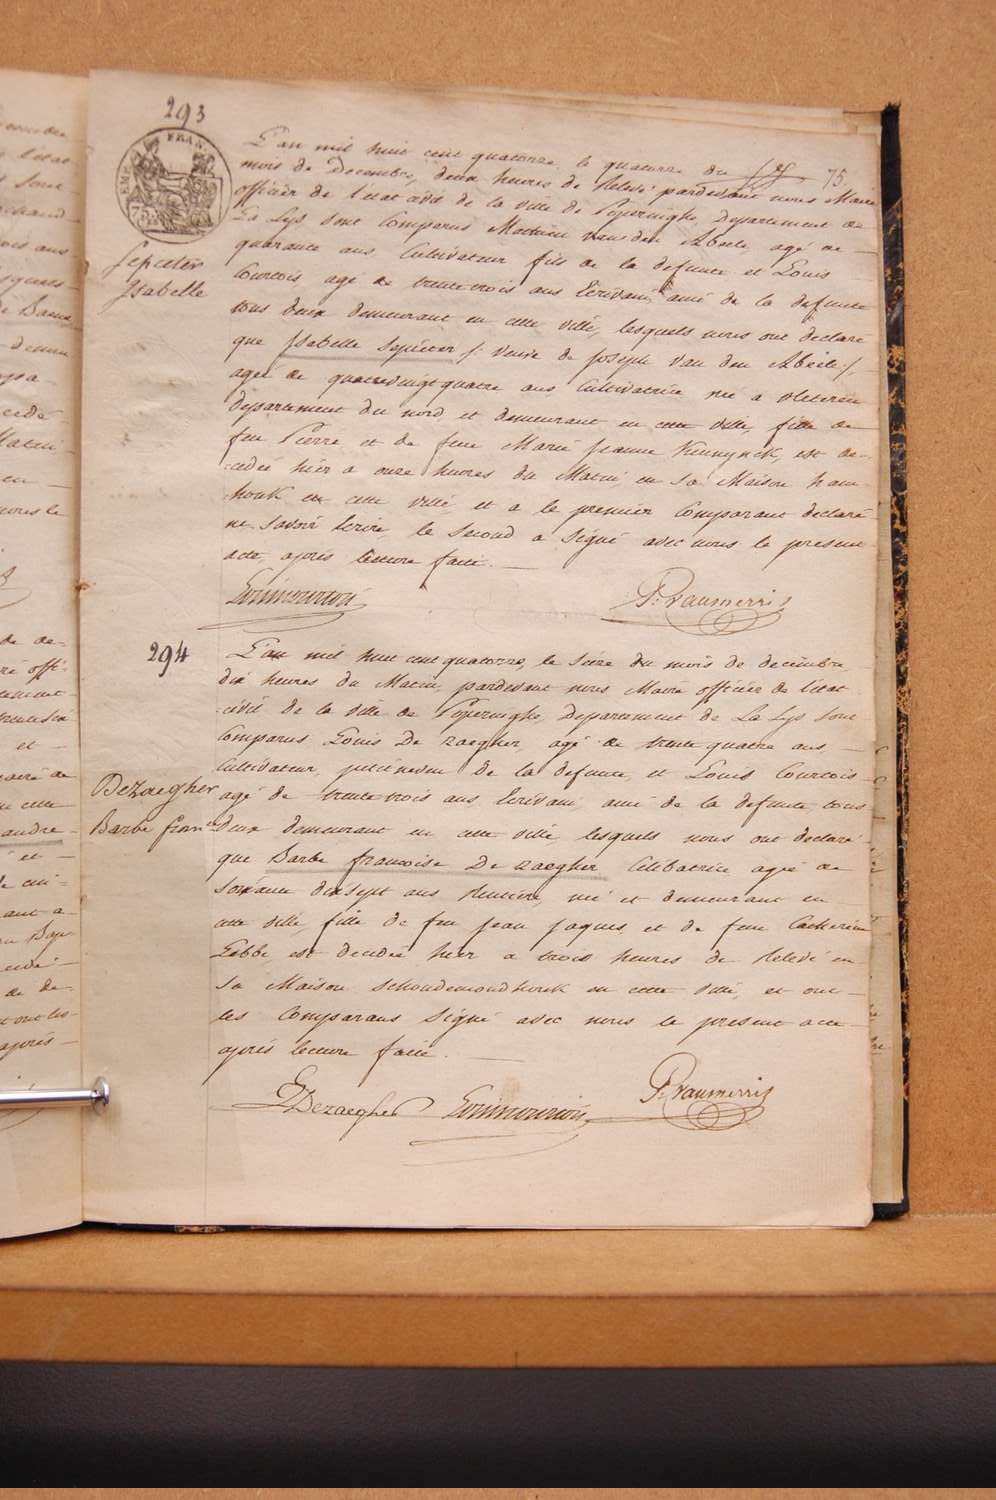 293
EMP. FRAN
75
75.
L'an mil huit cent quatorze, le quatorze du
mois de Decembre, deux heures de Relevé pardevant nous Maire
officier de l'etat civil de la ville de Poperinghe Departement de
La Lys sont Comparus Mathieu Vanden Abeele, agé de
quarante ans Cultivateur fils de la defunte et Louis
Courtois, agé de trente trois ans Ecrivain, ami de la defunte
tous deux demeurant en cette ville, lesquels nous ont declaré
que Isabelle Sepieter /: veuve de Joseph Van den Abeele :/
agée de quatrevingt quatre ans Cultivatrice née a
departement du nord et demeurant en cette ville, fille de
feu Pierre et de feue Marie Jeanne Kennynck, est de-
cedée hier a onze heures du Matin, en sa Maison ham-
houk en cette ville et a le premier Comparant declaré
ne savoir Ecrire, le second a signé avec nous le present
acte, après lecture faite.
Sepieter
Isabelle
Louis Courtois
P. Vanmerris
294
L'an mil huit cent quatorze, le seize du mois de decembre
dix heures du Matin, pardevant nous Maire officier de l'etat
civil de la ville de Poperinghe, Departement de La Lys sont
Comparus Louis De Zaegher, agé de trente quatre ans
Cultivateur, petit neveu de la defunte, et Louis Courtois
agé de trente trois ans Ecrivain, ami de la defunte tous
deux demeurant en cette ville, lesquels nous ont declaré
que Barbe francoise De Zaegher Celibatrice agée de
soixante dix sept ans Rentiere, née et demeurant en
cette ville, fille de feu Jean Jaques, et de feue Catherine
Lebbe est decedée hier a trois heures de Relevé en
sa Maison schoudemondhouk en cette ville, et ont
les Comparans signé avec nous le present acte
après lecture faite.
DeZaegher
Barbe franc.
L Dezaegher
Louis Courtois
P. Vanmerris